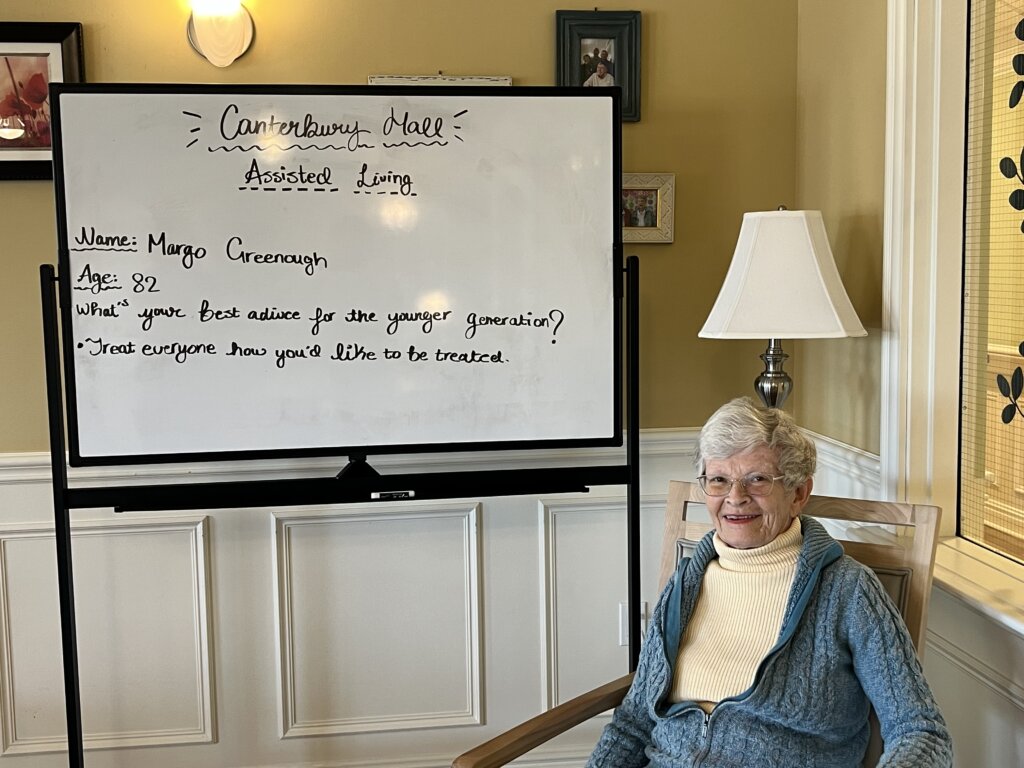 Canterbury Hall
Assisted Living
Name: Margo Greenough
Age: 82
What's your best advice for the younger generation?
• Treat everyone how you'd like to be treated.